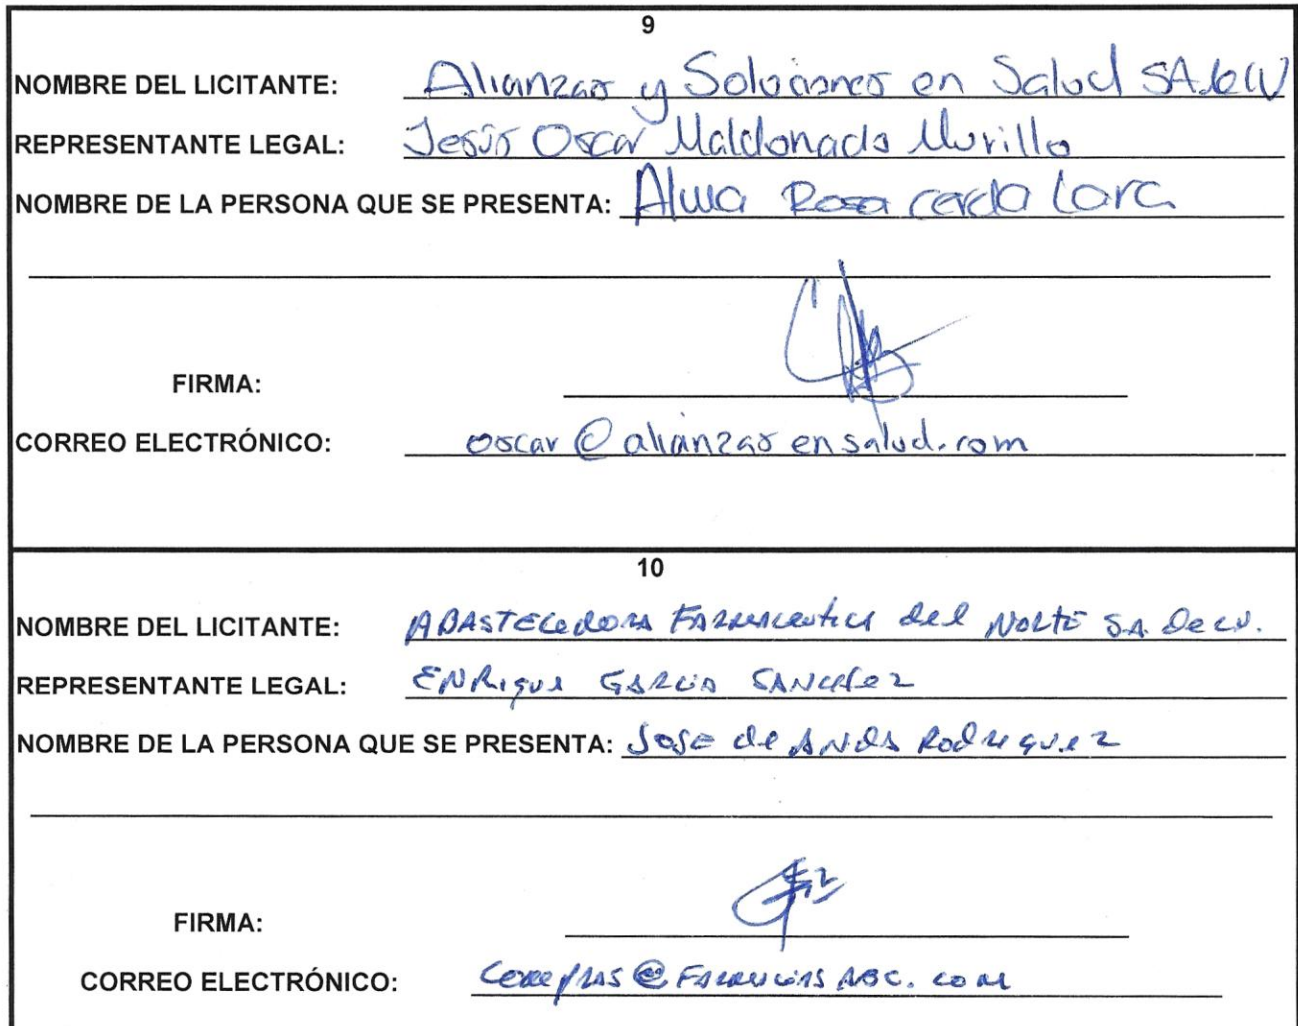 9
NOMBRE DEL LICITANTE: Alianzas y Soluciones en Salud SA de CV
REPRESENTANTE LEGAL: Jesús Oscar Maldonado Murillo
NOMBRE DE LA PERSONA QUE SE PRESENTA: Alma Rosa Cerda Lara
FIRMA:
CORREO ELECTRÓNICO: oscar@alianzasensalud.com
10
NOMBRE DEL LICITANTE: ABASTECEDORA FARMACEUTICA del NORTE S.A. De C.V.
REPRESENTANTE LEGAL: ENRIQUE GARCIA SANCHEZ
NOMBRE DE LA PERSONA QUE SE PRESENTA: JOSE de ANDA RODRIGUEZ
FIRMA:
CORREO ELECTRÓNICO: @FARMACIASABC.COM